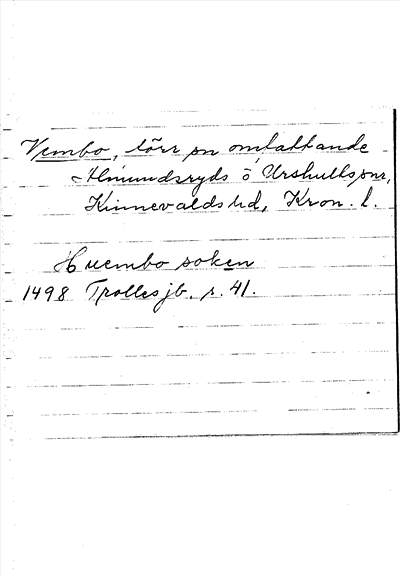 Vembo, törr sn omfattande
Almundsryds o Urshults snr,
Kinnevalds hd, Kron. l.
Huembo soken
1498 Trolles jb. s. 41.